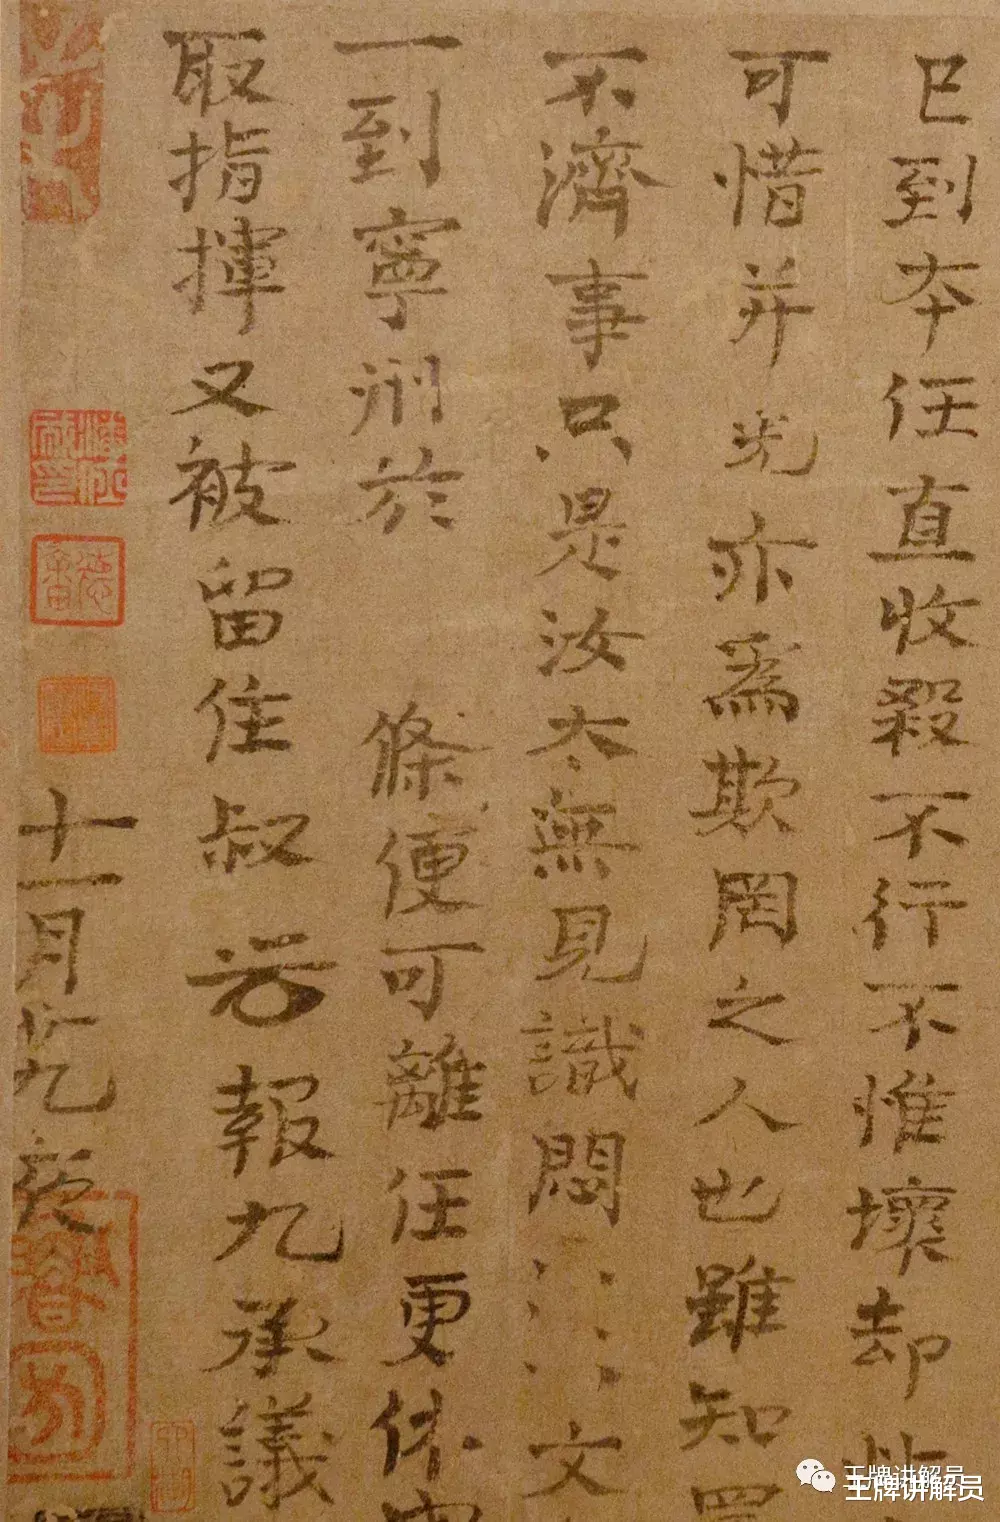 已到夲任直收殺不行不惟壞却
可惜并光亦為欺罔之人也雖知
不濟事只是汝太無見識悶文
一到寧州於 條便可離任更休
取指揮又被留住叔 報九承議
十一月廿九夜
王牌讲解员
王牌讲解员